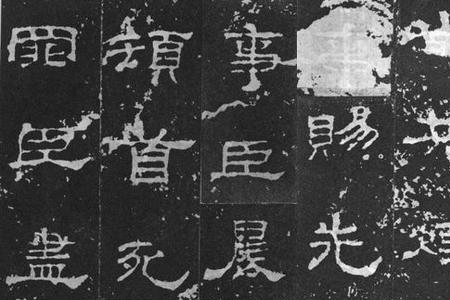 賜先
事臣晨
頓首死
罪臣盡